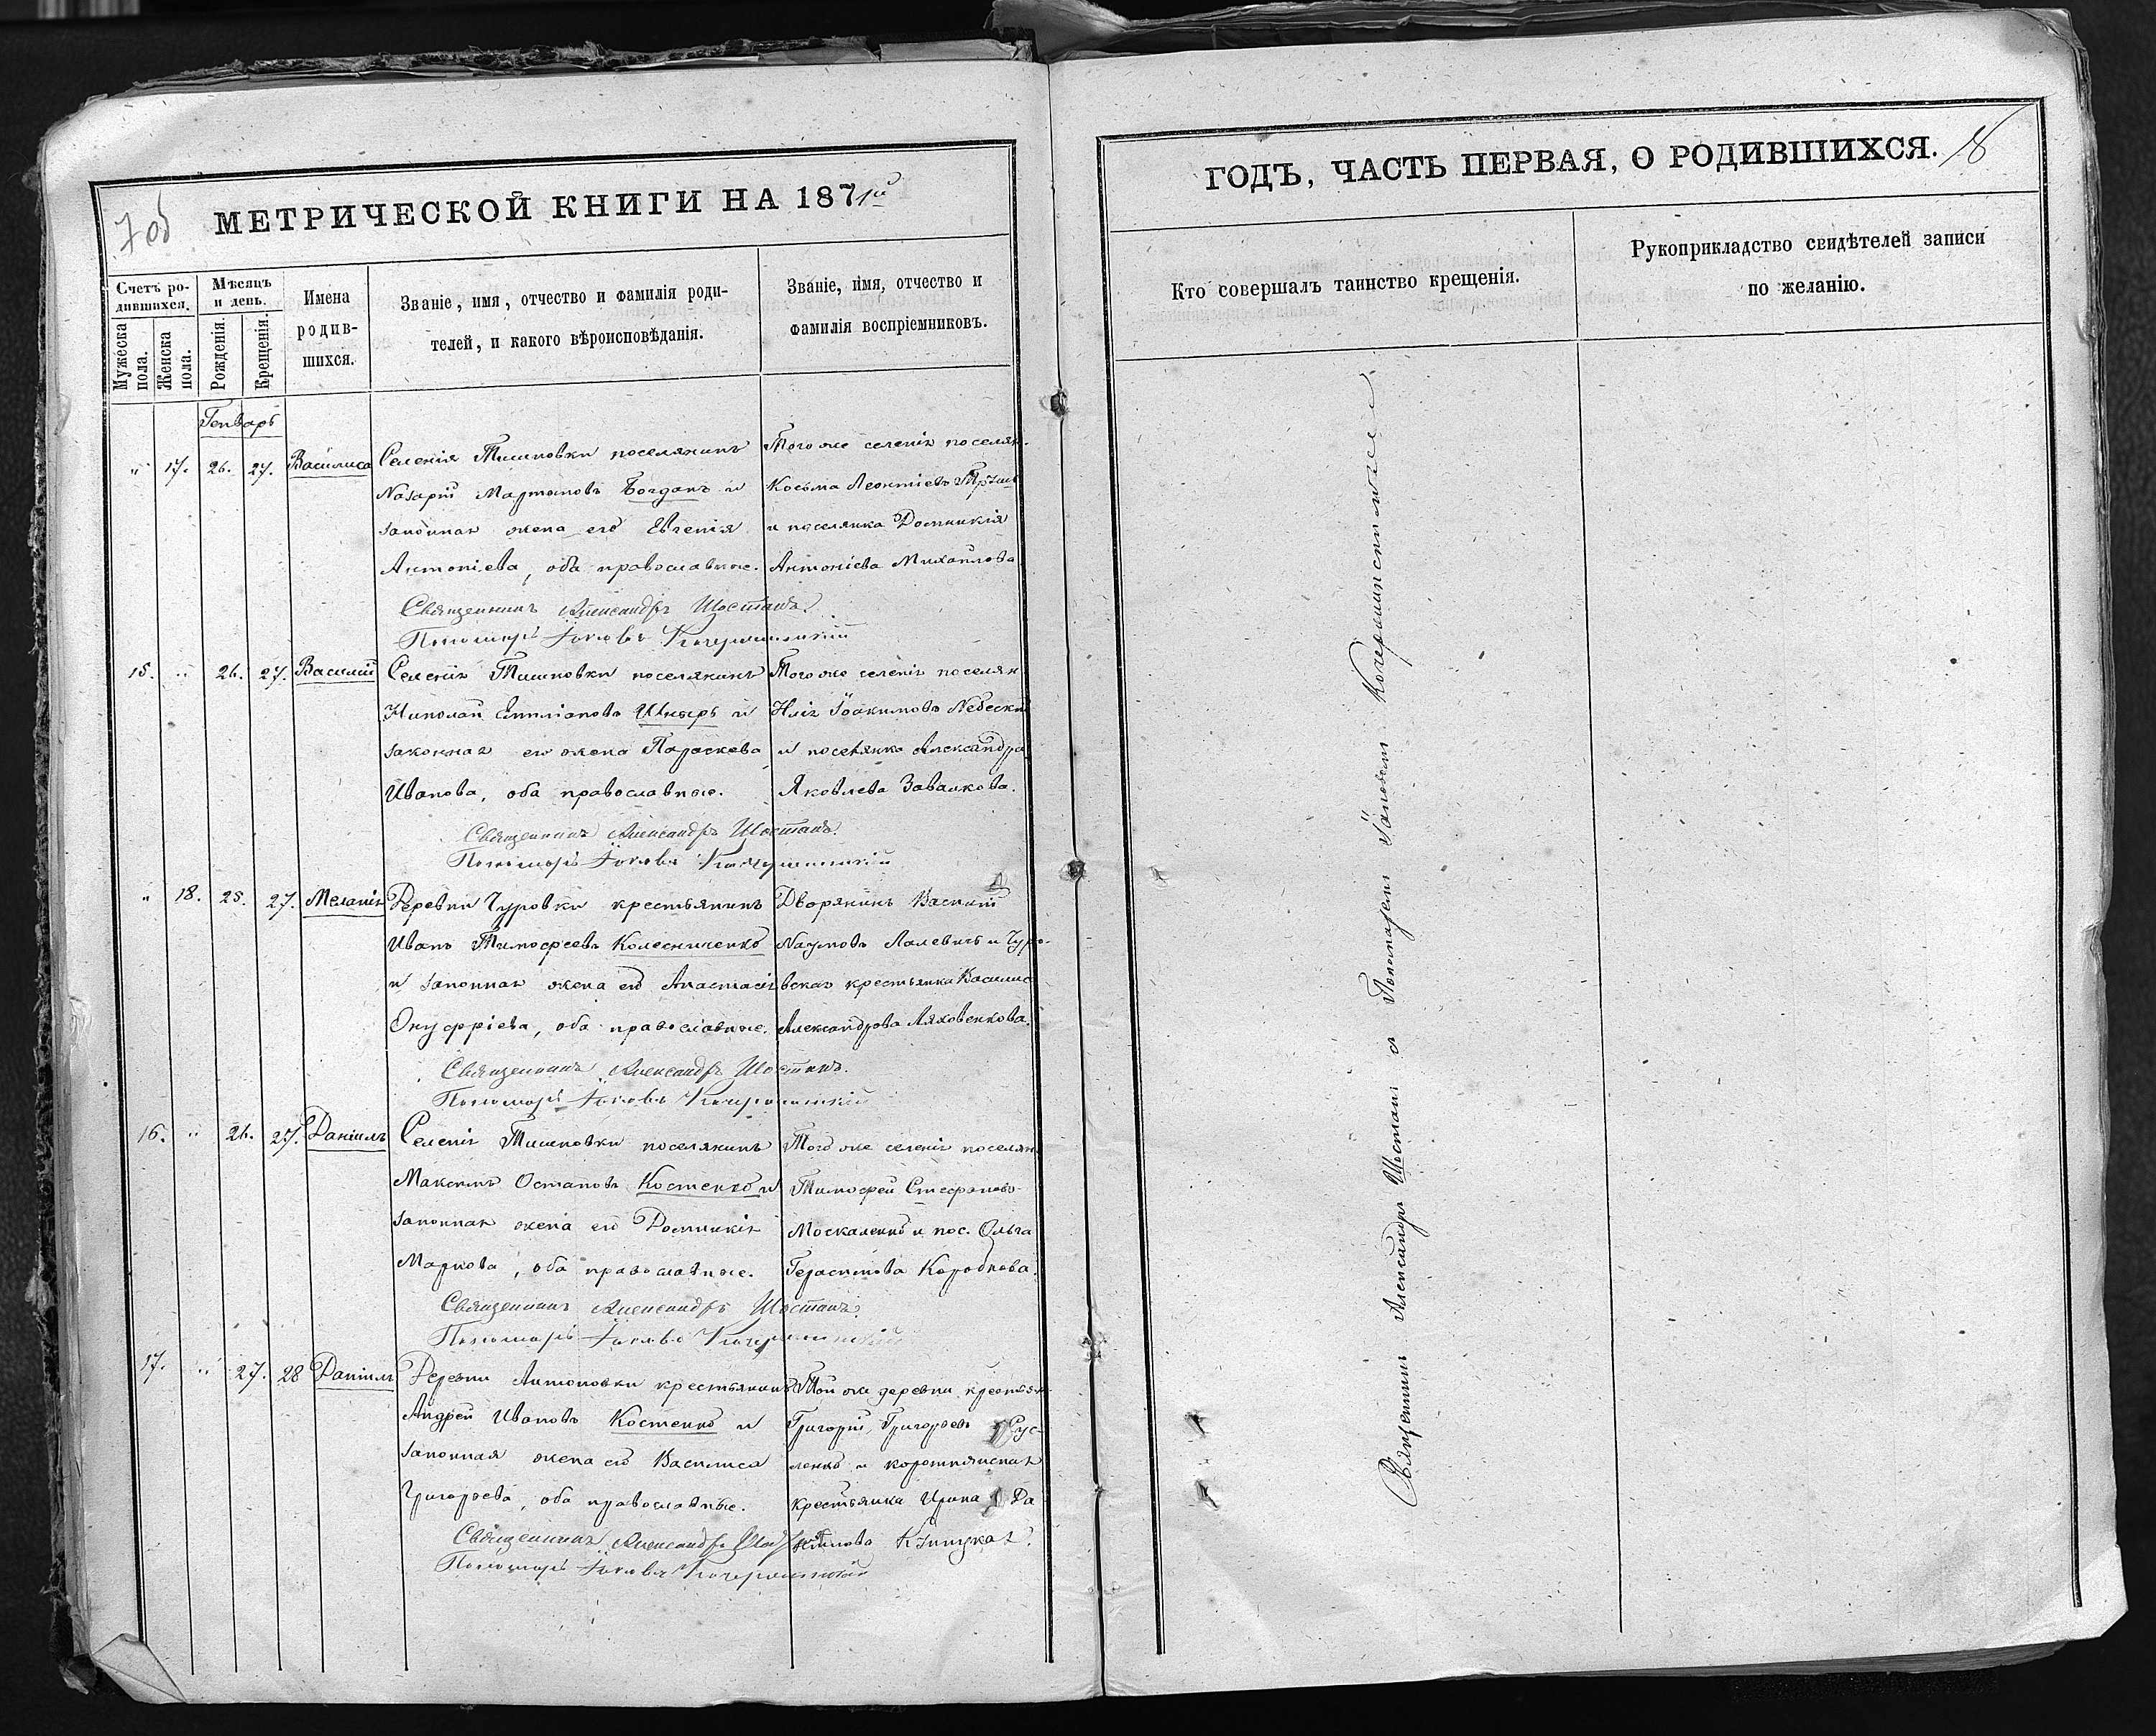 7 об
МЕТРИЧЕСКОЙ КНИГИ НА 1871й
Счетъ ро-
дившихся.
Мужеска
пола.
Женска
пола.
Мѣсяцъ
и день.
Рожденія.
Крещенія.
Имена
родив-
шихся.
Званіе, имя, отчество и фамилія роди-
телей, и какого вѣроисповѣданія.
Званіе, имя, отчество и
фамилія воспріемниковъ.
Генварь
" 17. 26. 27. Василиса
Селенія Тишковки поселянинъ
Назарій Мартыновъ Богданъ и
законная жена его Евгенія
Антоніева, оба православные.
Того же селенія поселян.
Косьма Леонтіевъ
и поселянка Домникія
Антоніева Михайлова
Священникъ Александръ Шостакъ.
Пономарь Іаковъ
15. " 26. 27. Василій
Селенія Тишковки поселянинъ
Николай Емиліановъ Шкыръ и
законная его жена Параскева
Иванова, оба православные.
Того же селенія поселян
Илія Іоакимовъ Небеский
и поселянка Александра
Яковлева Завалкова.
Священникъ Александръ Шостакъ.
Пономарь Іаковъ
" 18. 25. 27. Меланія
Деревни Чуровки крестьянинъ
Иванъ Тимофеевъ Колесниченко
и законная жена его Анастасія
Онуфріева, оба православные.
Дворянинъ Василий
Наумовъ Лалевичъ и Чуро-
вская крестьянка Василис
Александрова Ляховенкова.
Священникъ Александръ Шостакъ.
Пономарь Іаковъ
16. " 26. 27. Даніилъ
Селенія Тишковки поселянинъ
Максимъ Остаповъ Костенко и
законная жена его Домникія
Маркова, оба православные.
Того же селенія поселян.
Тимофей Стефановъ
Москаленко и пос. Ольга
Герасимова Коробкова.
Священникъ Александръ Шостакъ.
Пономарь Іаковъ
17. " 27. 28 Даніилъ
Деревни Антоновки крестьянинъ
Андрей Ивановъ Костенко и
законная жена его Василиса
Григорьева, оба православные.
Той же деревни крестьян
Григорій Григорьевъ Рус-
ленко и
крестьянка Ирина Да
нилова
Священникъ Александръ
Пономарь Іаковъ
ГОДЪ, ЧАСТЬ ПЕРВАЯ, О РОДИВШИХСЯ.
18
Кто совершалъ таинство крещенія.
Рукоприкладство свидѣтелей записи
по желанію.
Священникъ Александръ Шостакъ съ Пономаремъ Іаковомъ